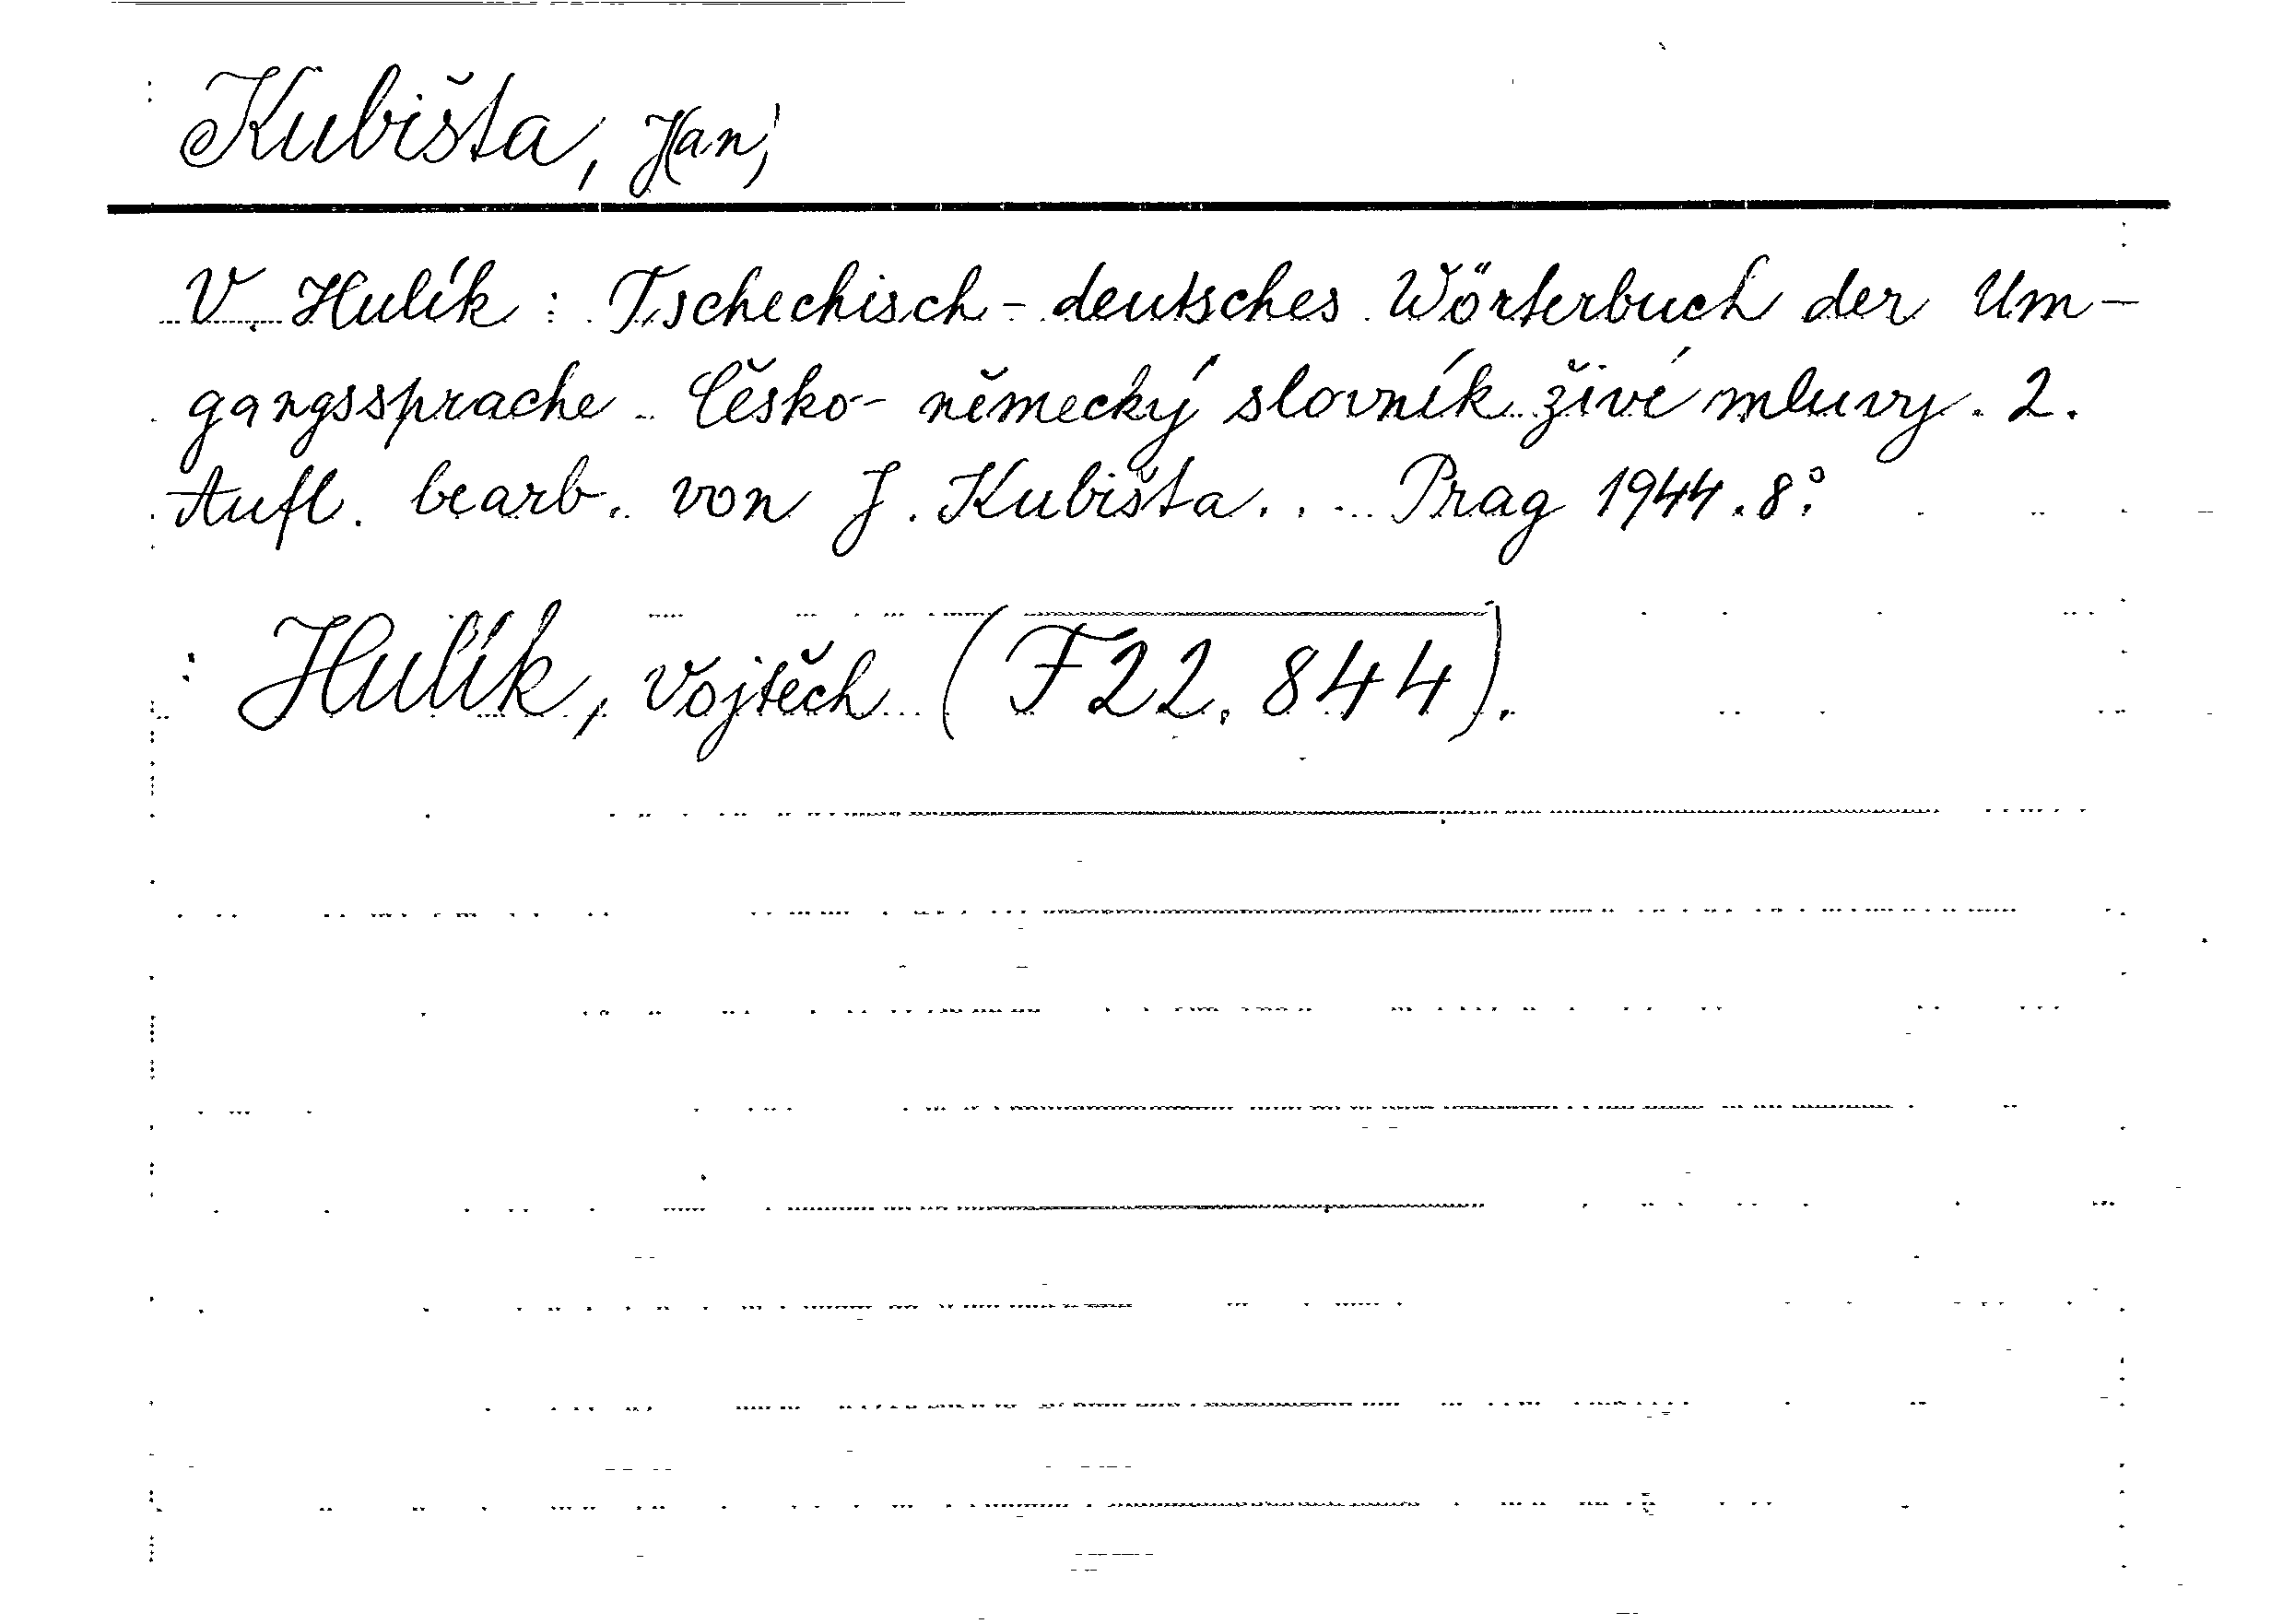 Kubišta, J(an)
V. Hulík : Tschechisch-deutsches Wörterbuch der Um-
gangssprache. Česko-německý slovník živé mluvy. 2.
Aufl. bearb. von J. Kubišta. ... Prag 1944. 8°.
: Hulík, Vojtěch (F 22.844).